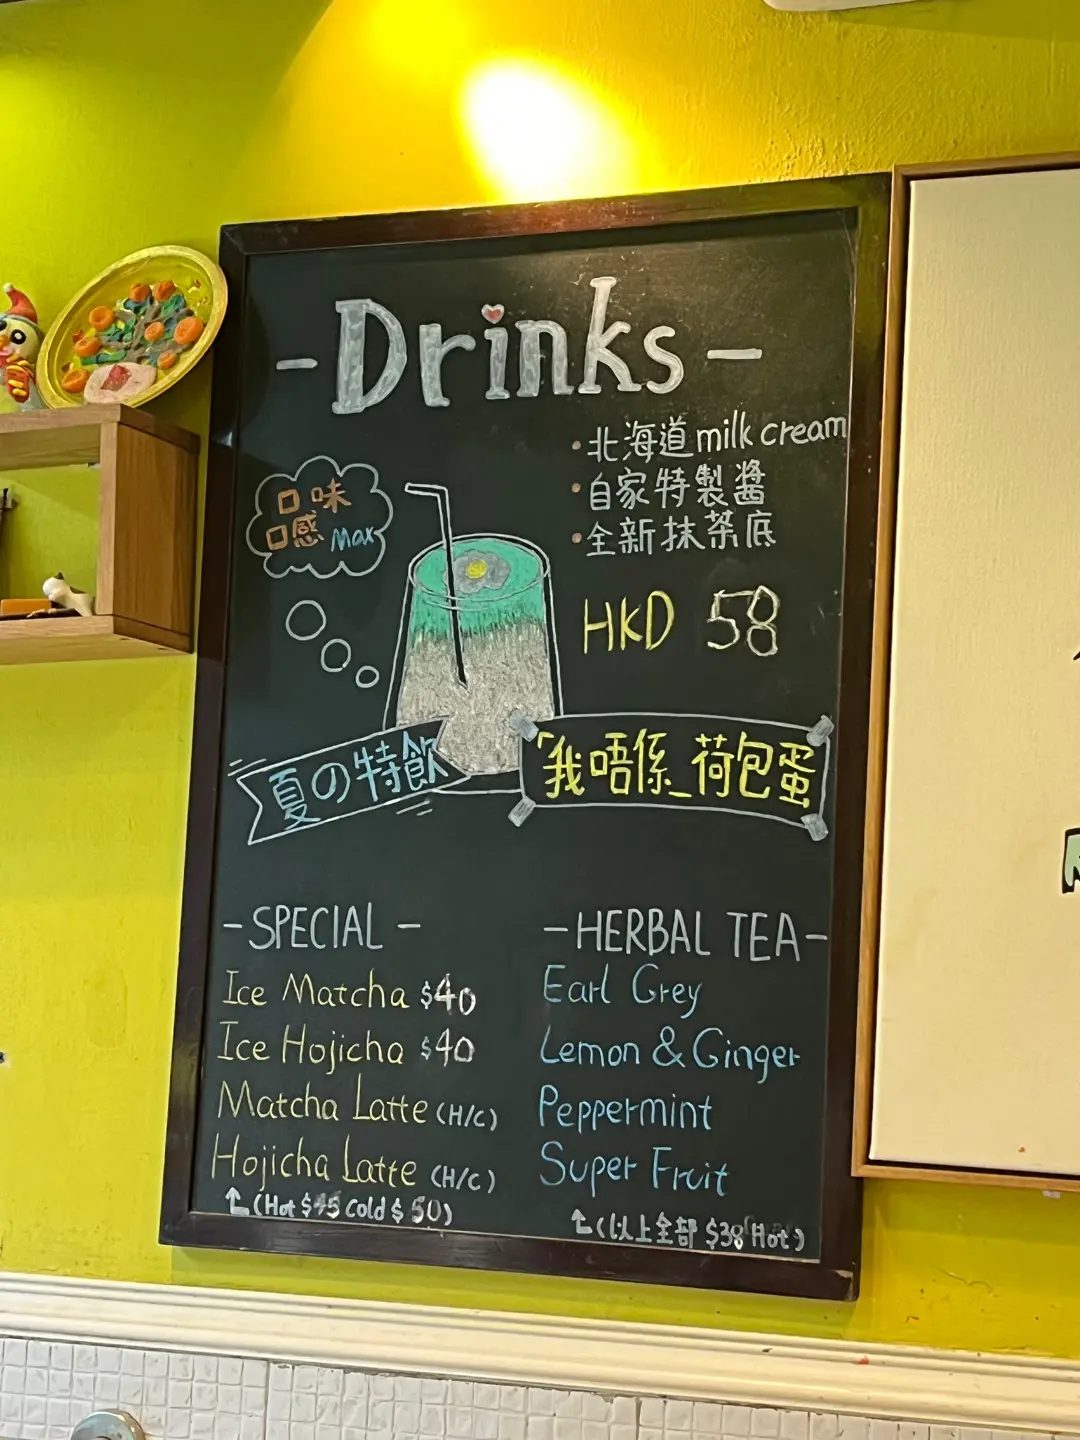 - Drinks -
・北海道 milk cream
・自家特製醬
・全新抹茶底
口味
口感 Max
HKD 58
夏の特飲
「我唔係_荷包蛋
- SPECIAL -
Ice Matcha $40
Ice Hojicha $40
Matcha Latte (H/C)
Hojicha Latte (H/C)
(Hot $45 Cold $ 50)
- HERBAL TEA -
Earl Grey
Lemon & Ginger
Peppermint
Super Fruit
(以上全部 $38 Hot)